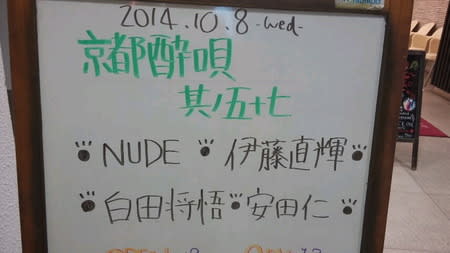 2014.10.8 -wed-
京都酔唄
其ノ五十七
NUDE 伊藤直輝
白田将悟 安田仁